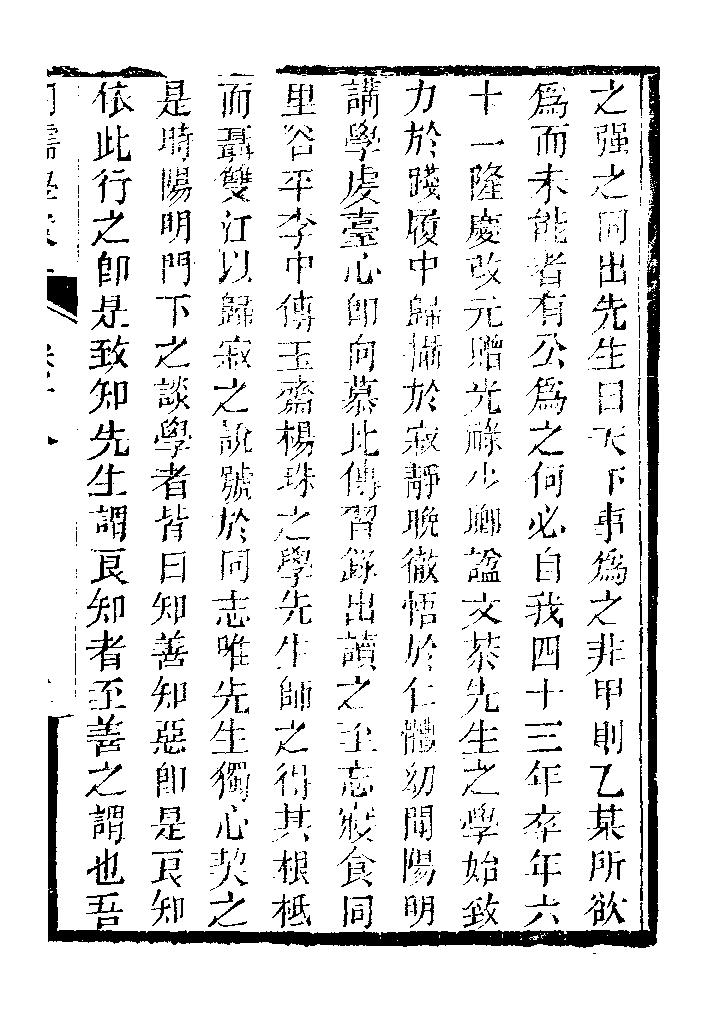 之强之同出先生曰天下事爲之非甲則乙某所欲
爲而未能者有公爲之何必自我四十三年卒年六
十一隆慶改元贈光祿少卿諡文恭先生之學始致
力於踐履中歸攝於寂靜晚徹悟於仁體幼聞陽明
講學虔臺心卽向慕比傳習錄出讀之至忘寢食同
里谷平李中傳玉齋楊珠之學先生師之得其根柢
而聶雙江以歸寂之說號於同志唯先生獨心契之
是時陽明門下之談學者皆曰知善知惡卽是良知
依此行之卽是致知先生謂良知者至善之謂也吾